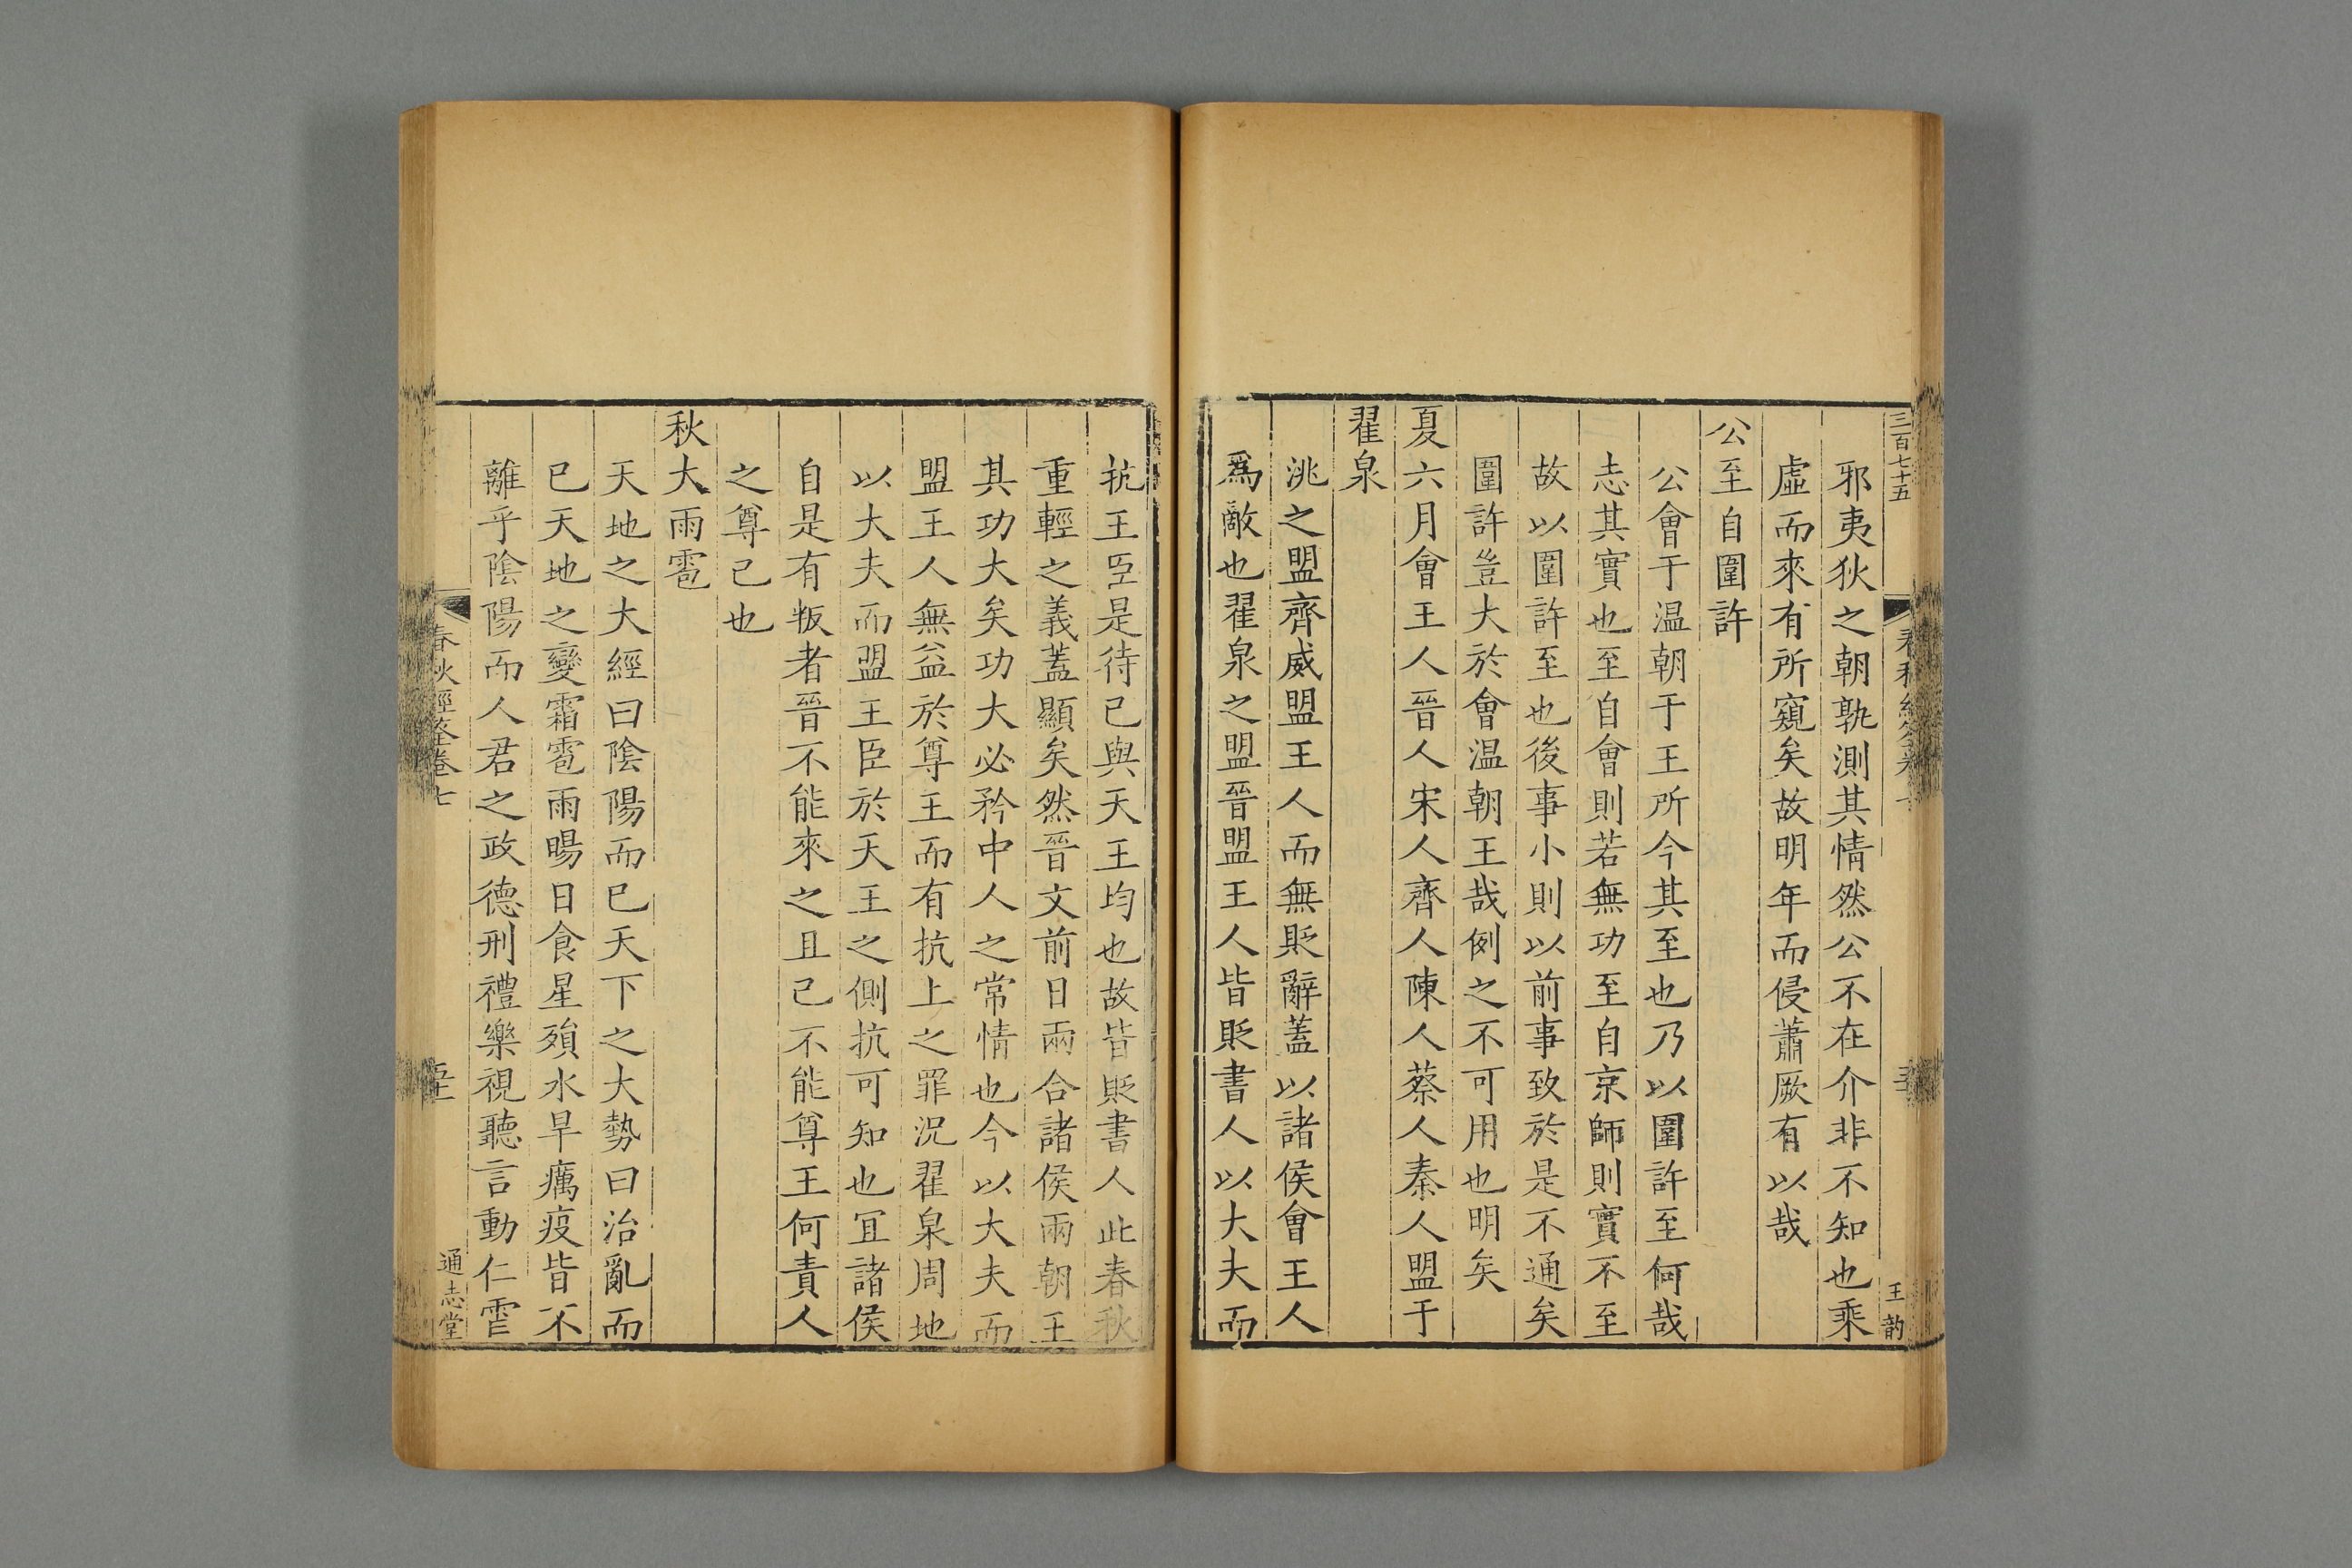 三百七十五
王韵
邪夷狄之朝孰測其情然公不在介非不知也乘
虛而來有所窺矣故明年而侵蕭厥有以哉
公至自圍許
公會于温朝于王所今其至也乃以圍許至何哉
志其實也至自會則若無功至自京師則實不至
故以圍許至也後事小則以前事致於是不通矣
圍許豈大於會温朝王哉例之不可用也明矣
夏六月會王人晉人宋人齊人陳人蔡人秦人盟于
翟泉
洮之盟齊威盟王人而無貶辭蓋以諸侯會王人
爲敵也翟泉之盟晉盟王人皆貶書人以大夫而
抗王臣是待已與天王均也故皆貶書人此春秋
重輕之義蓋顯矣然晉文前日兩合諸侯兩朝王
其功大矣功大必矜中人之常情也今以大夫而
盟王人無益於尊王而有抗上之罪況翟泉周地
以大夫而盟王臣於天王之側抗可知也冝諸侯
自是有叛者晉不能來之且己不能尊王何責人
之尊己也
秋大雨雹
天地之大經曰陰陽而已天下之大勢曰治亂而
已天地之變霜雹雨暘日食星殞水旱癘疫皆不
離乎陰陽而人君之政德刑禮樂視聽言動仁霅
春秋經筌卷七
通志堂